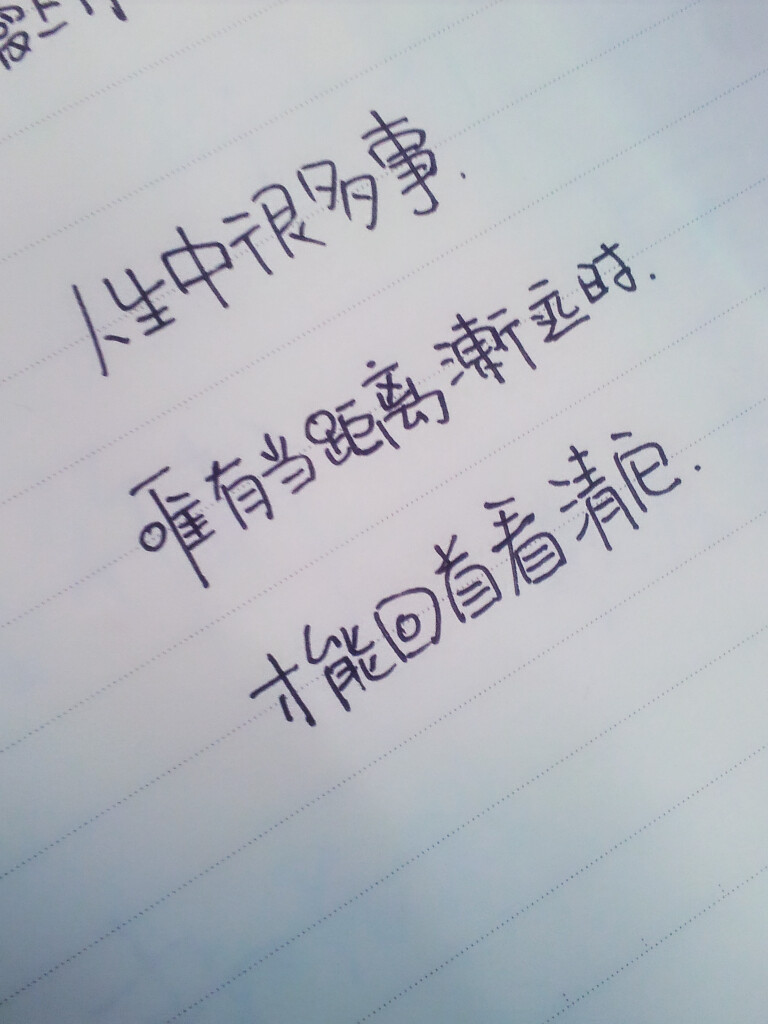 人生中很多事.
唯有当距离漸远时.
才能回首看清它.